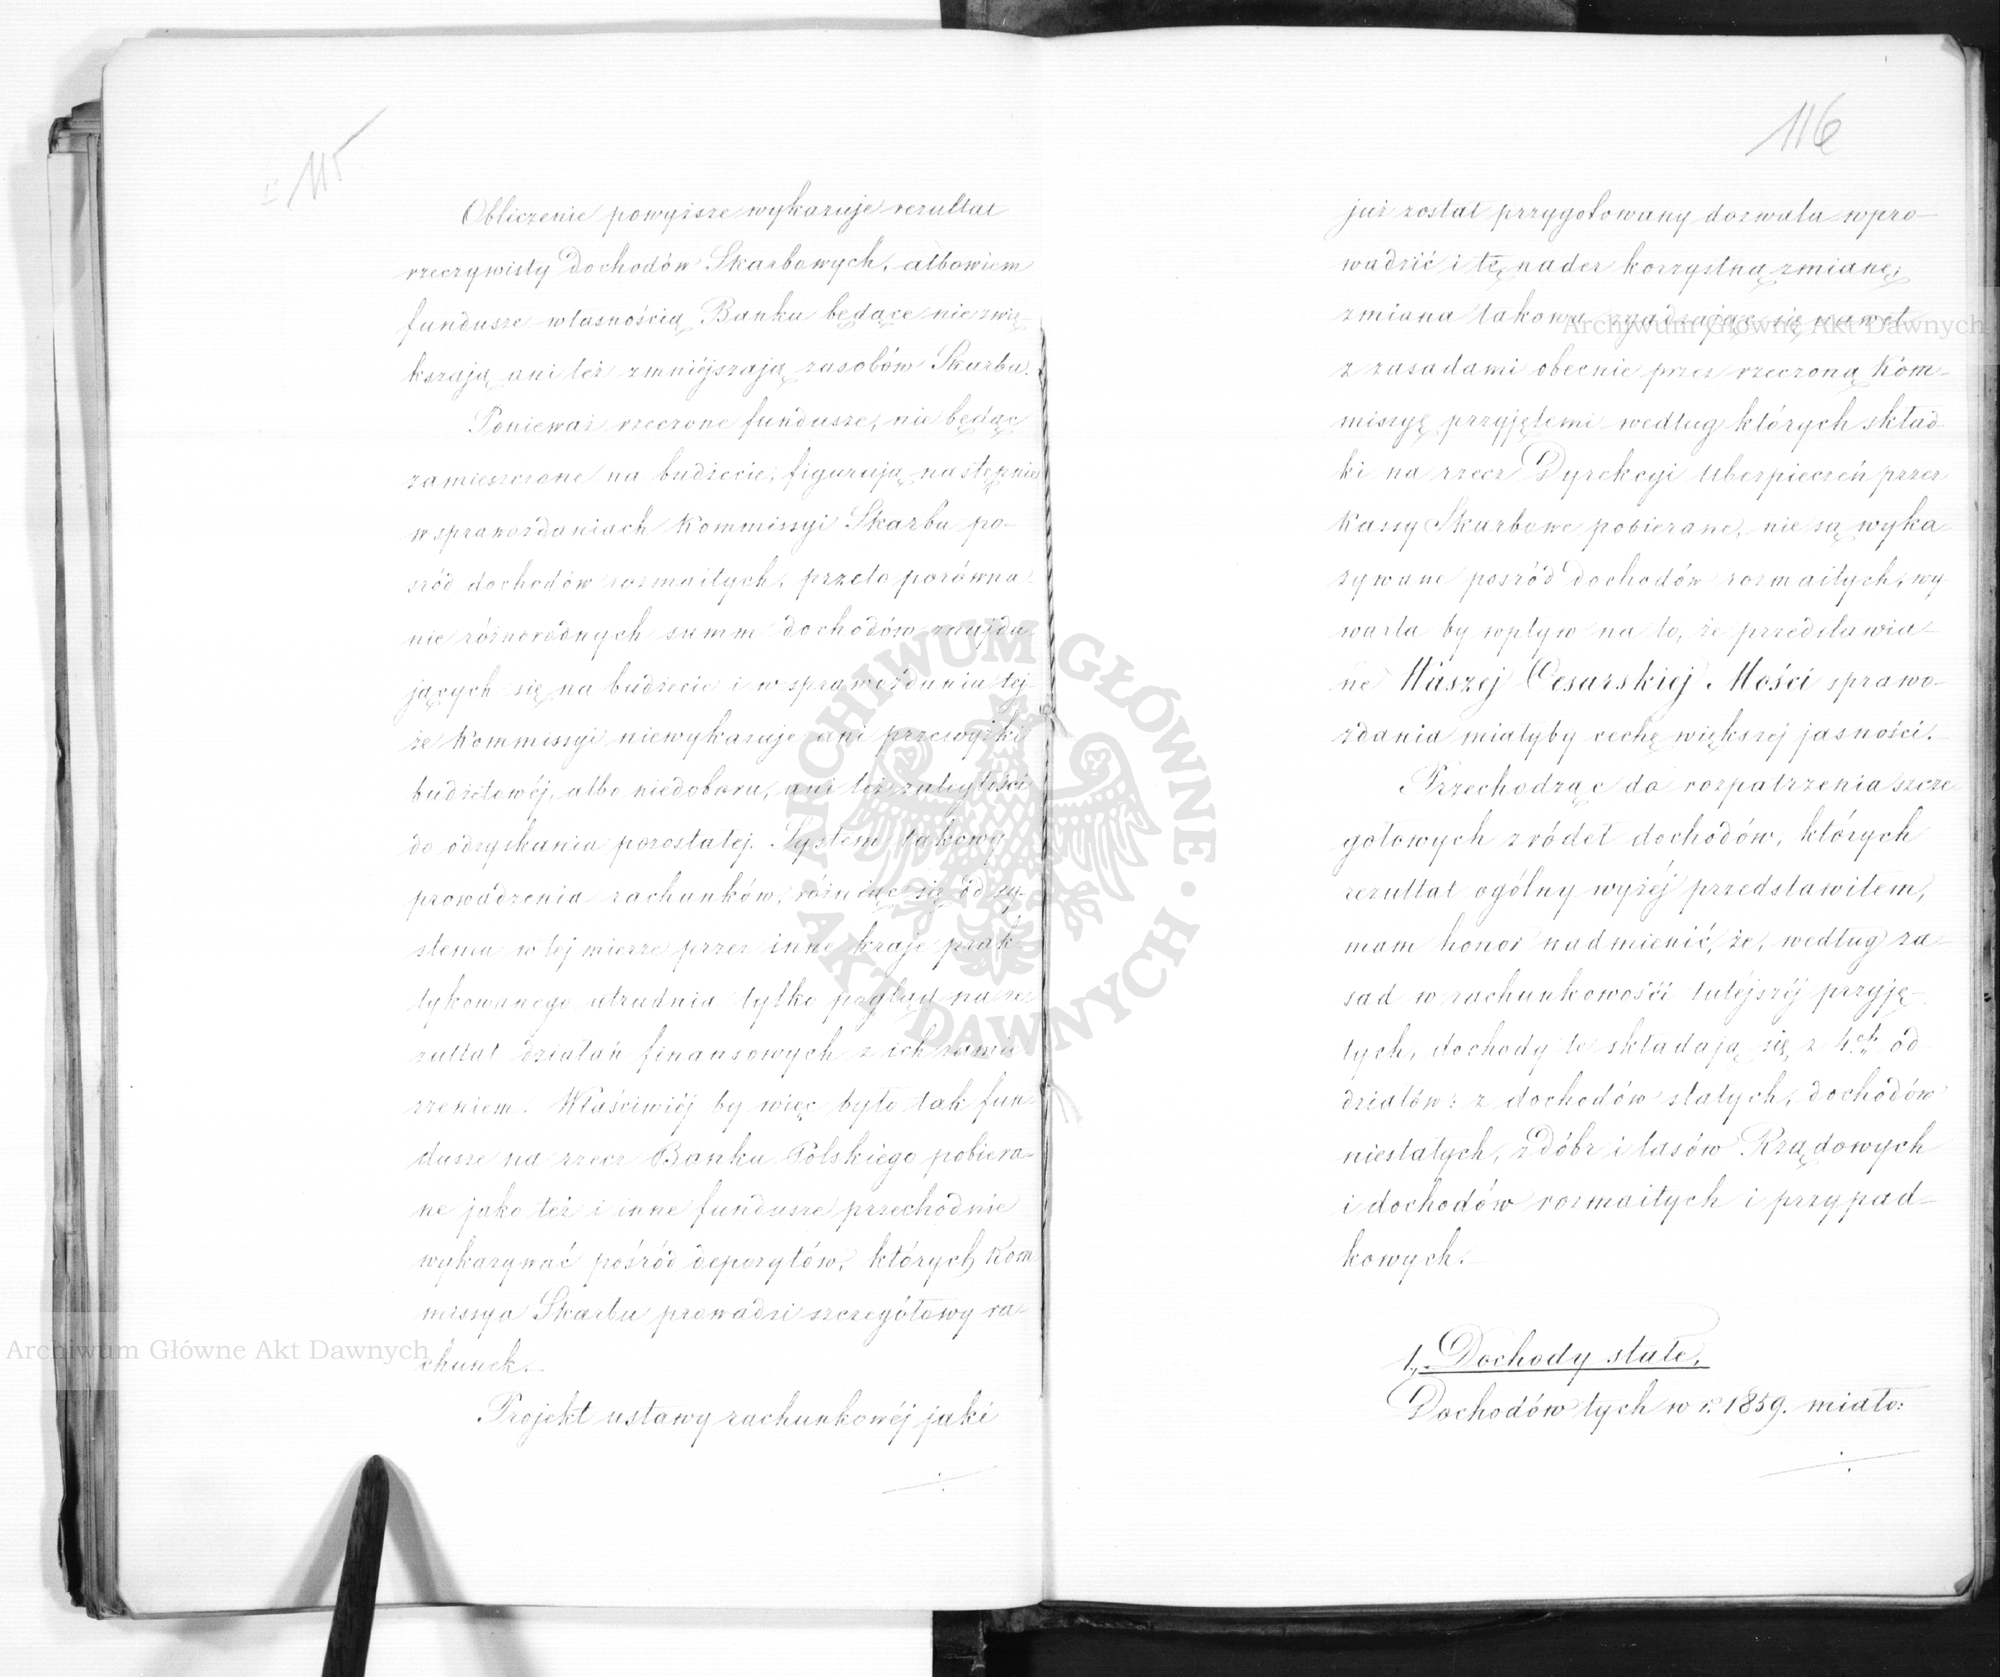 115
Obliczenie powyższe wykazuje rezultat
rzeczywisty dochodów Skarbowych, albowiem
fundusze własnością Banku będące nie zwię-
kszają ani też zmniéjszają zasobów Skarbu.
Ponieważ rzeczone fundusze, nie będąc
zamieszczone na budżecie, figurują następnie
w sprawozdaniach Kommissyi Skarbu po-
śród dochodów rozmaitych, przeto porówna
nie różnorodnych summ dochodów znajdu
jących się na budżecie i w sprawozdaniu tej-
że Kommissyi niewykazuje ani przewyżki
budżetowéj, albo niedoboru, ani też zaległości
do odzyskania pozostałej. System takowy
prowadzenia rachunków, różniąc się od sy-
stemu w tej mierze przez inne kraje prak
tykowanego utrudnia tylko pogląd na re
zultat działań finansowych z ich zamie
rzeniem. Właściwiéj by więc było tak fun
dusze na rzecz Banku Polskiego pobiera-
ne jako też i inne fundusze przechodnie
wykazywać pośród depozytów, których Kom
missya Skarbu prowadzi szczegółowy ra-
chunek.
Projekt ustawy rachunkowéj jaki
116
już został przygotowany dozwala wpro-
wadzić i tę nader korzystną zmianę;
zmiana takowa zgadzając się nawet
z zasadami obecnie przez rzeczoną Kom-
missyę przyjętemi według których skład
ki na rzecz Dyrekcyi Ubezpieczeń przez
Kassy Skarbowe pobierane, nie są wyka
zywane pośród dochodów rozmaitych, wy
warła by wpływ na to, że przedstawia-
ne Waszej Cesarskiej Mości sprawo-
zdania miałyby cechę większej jasności.
Przechodząc do rozpatrzenia szcze
gółowych źródeł dochodów, których
rezultat ogólny wyżéj przedstawiłem,
mam honor nadmienić, że, według za-
sad w rachunkowości tutéjszéj przyję-
tych, dochody te składają się z 4ch od
działów: z dochodów stałych, dochodów
niestałych, z dóbr i lasów Rządowych
i dochodów rozmaitych i przypad-
kowych.
1., Dochody stałe.
Dochodów tych w r. 1859. miało:
Archiwum Główne Akt Dawnych
Archiwum Główne Akt Dawnych
ARCHIWUM GŁÓWNE · AKT DAWNYCH ·